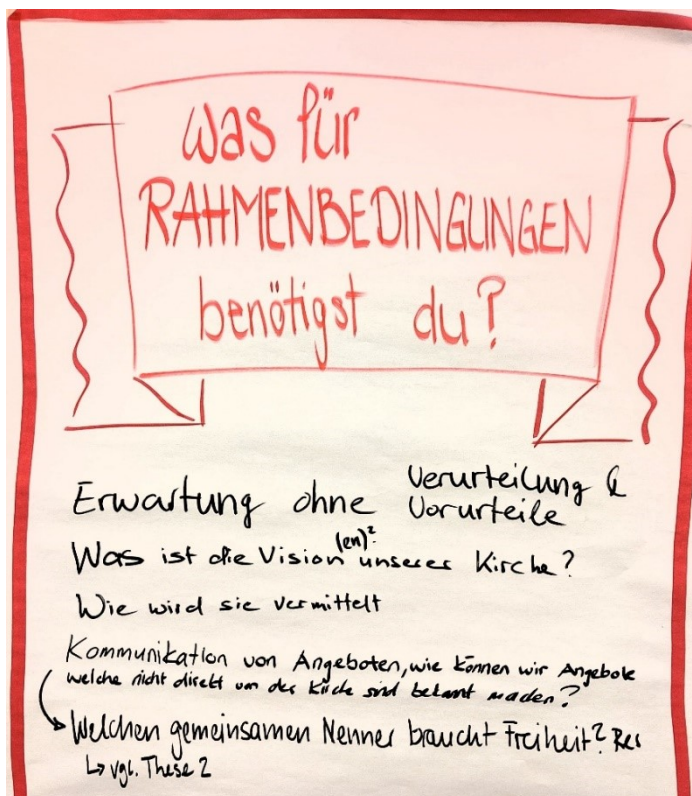 Was für
RAHMENBEDINGUNGEN
benötigst du?
Erwartung ohne Verurteilung &
Vorurteile
Was ist die Vision (en)? unserer Kirche?
Wie wird sie vermittelt
Kommunikation von Angeboten, wie können wir Angebote
welche nicht direkt um der Kirche sind bekannt machen?
Welchen gemeinsamen Nenner braucht Freiheit?
↳ vgl. These 2